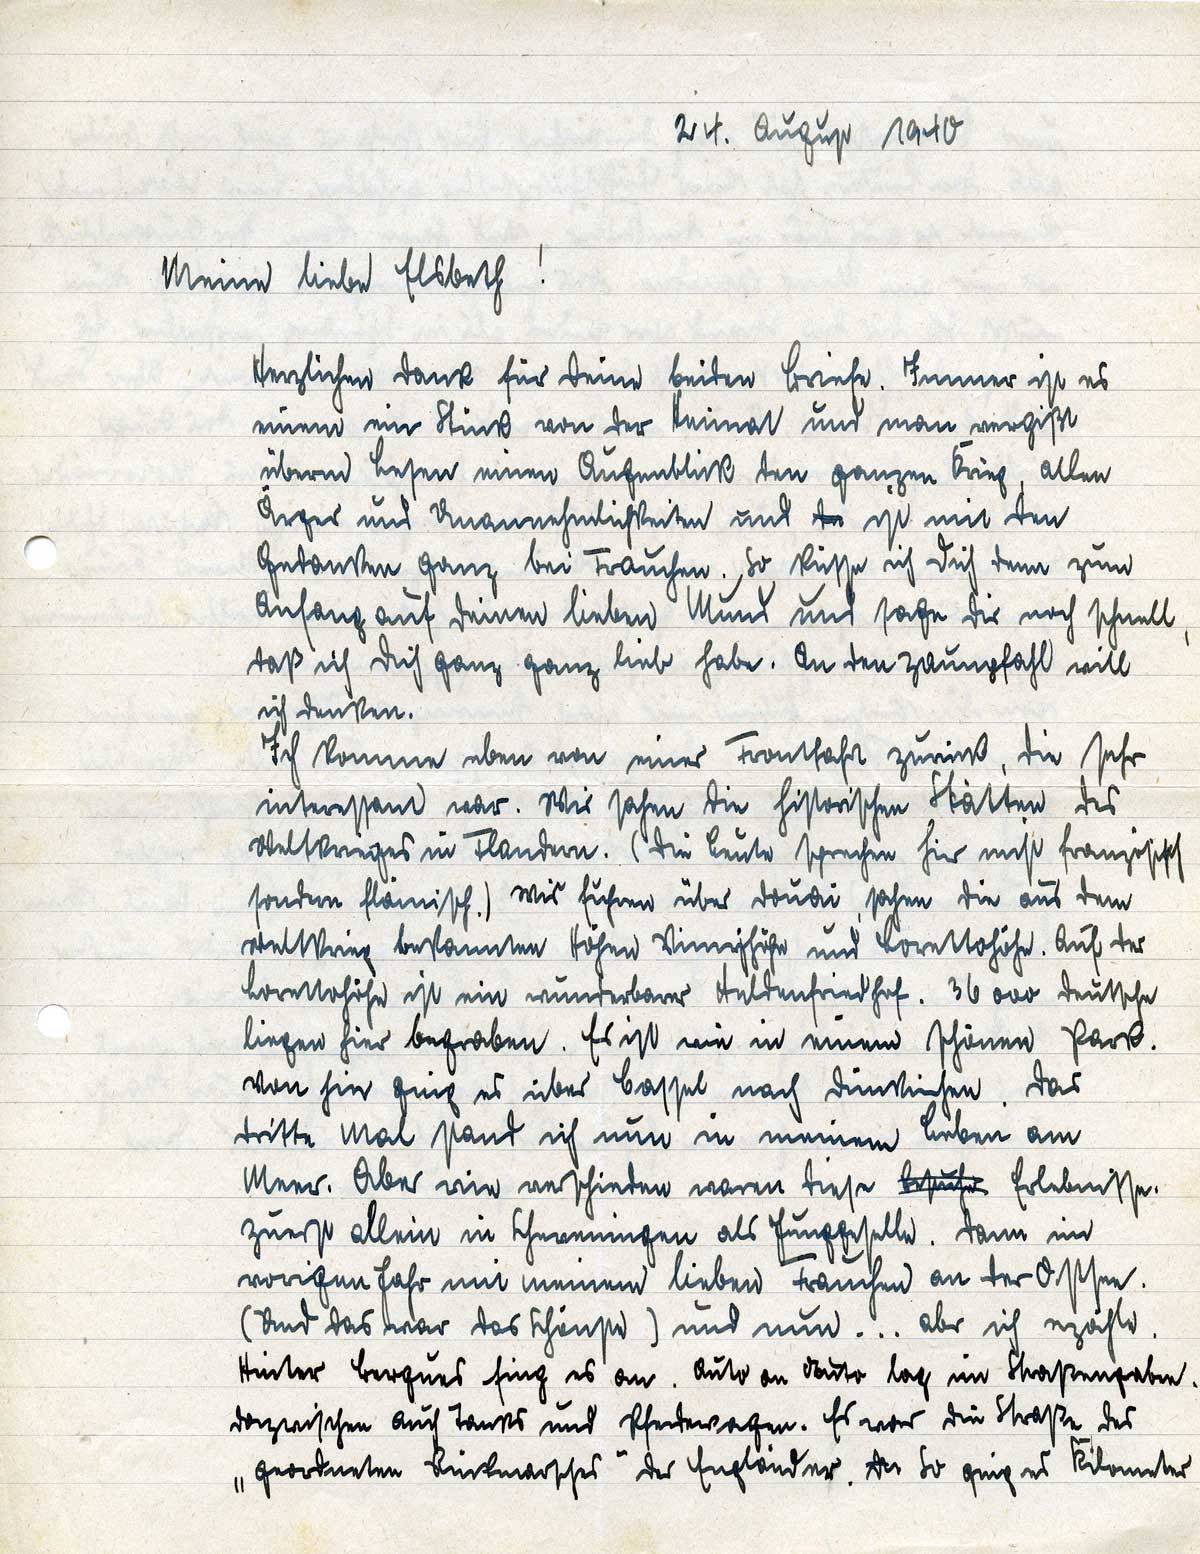 24. August 1940
Meine liebe Elsbeth!
Herzlichen Dank für Deine beiden Briefe. Immer ist es
einem ein Stück von der Heimat und man vergißt
überm Lesen einen Augenblick den ganzen Krieg, allen
Ärger und Unannehmlichkeiten und ist mit den
Gedanken ganz bei Frauchen. So küsse ich Dich denn zum
Anfang auf Deinen lieben Mund und sage Dir noch schnell,
daß ich Dich ganz ganz lieb habe. An den Zaunpfahl will
ich denken.
Ich komme eben von einer Frontfahrt zurück, die sehr
interessant war. Wir sahen die historischen Stätten des
Weltkrieges in Flandern. (Die Leute sprechen hier nicht französisch
sondern flämisch.) Wir fuhren über Douai, sahen die aus dem
Weltkrieg bekannten Höhen Vimyhöhe und Lorettohöhe. Auf der
Lorettohöhe ist ein wunderbarer Heldenfriedhof. 36 000 Deutsche
liegen hier begraben. Es ist wie in einem schönen Park.
Von hier ging es über Cassel nach Dünkirchen. Das
dritte Mal stand ich nun in meinem Leben am
Meer. Aber wie verschieden waren diese Besuche Erlebnisse.
Zuerst allein in Scheveningen als Junggeselle. Dann im
vorigen Jahr mit meinem lieben Frauchen an der Ostsee.
(Und das war das Schönste) und nun ... aber ich erzähle.
Hinter Bergues fing es an. Auto an Auto lag im Straßengraben.
Dazwischen auch Tanks und Pferdewagen. Es war die Straße des
„geordneten Rückmarsches" der Engländer. So ging es Kilometer